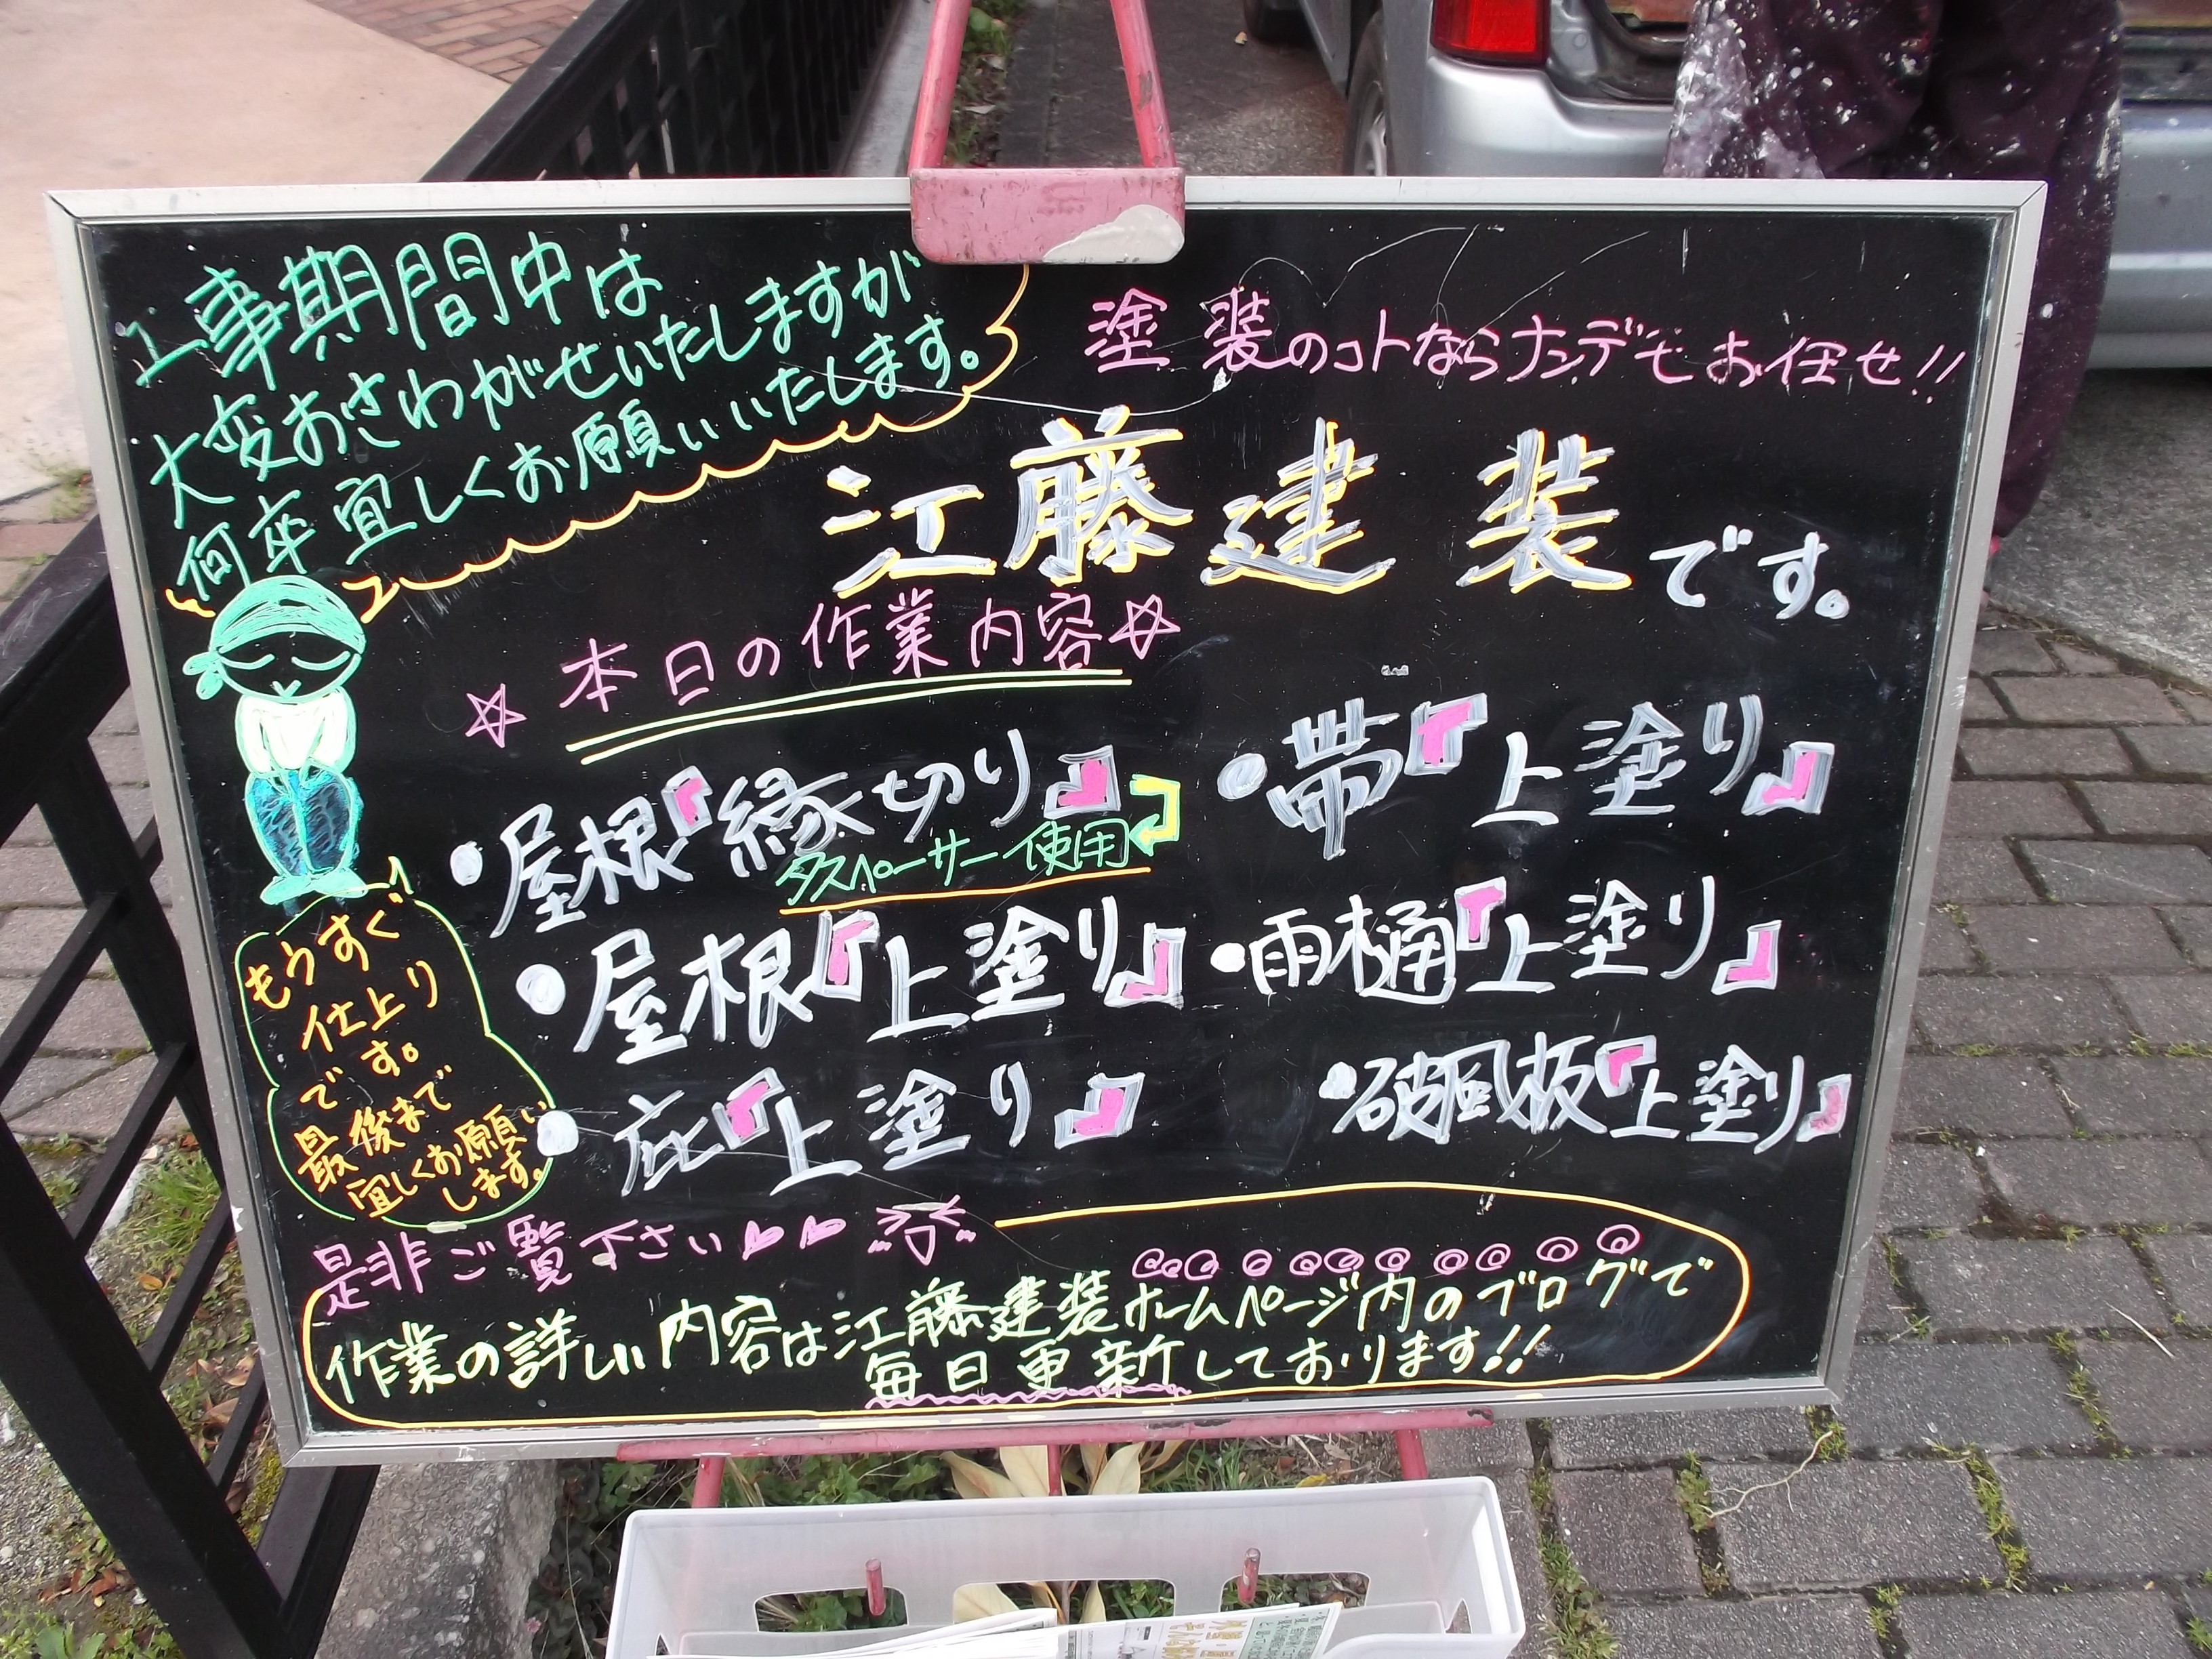 工事期間中は
大変おさわがせいたしますが
何卒宜しくお願いいたします。
塗装のコトならナンデモお任せ!!
江藤建装です。
☆本日の作業内容☆
・屋根『縁切り』
タスペーサー使用
・屋根『上塗り』
・庇『上塗り』
・帯『上塗り』
・雨樋『上塗り』
・破風板『上塗り』
もうすぐ
仕上り
で す。
最後まで
宜しくお願い
します。
是非ご覧下さい
作業の詳しい内容は江藤建装ホームページ内のブログで
毎日更新しております!!